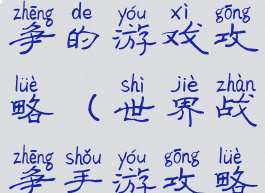 zhēng de yóu xì gōng
争的游戏攻
lüè shì jiè zhàn
略（世界战
zhēng shǒu yóu gōng lüè
争手游攻略